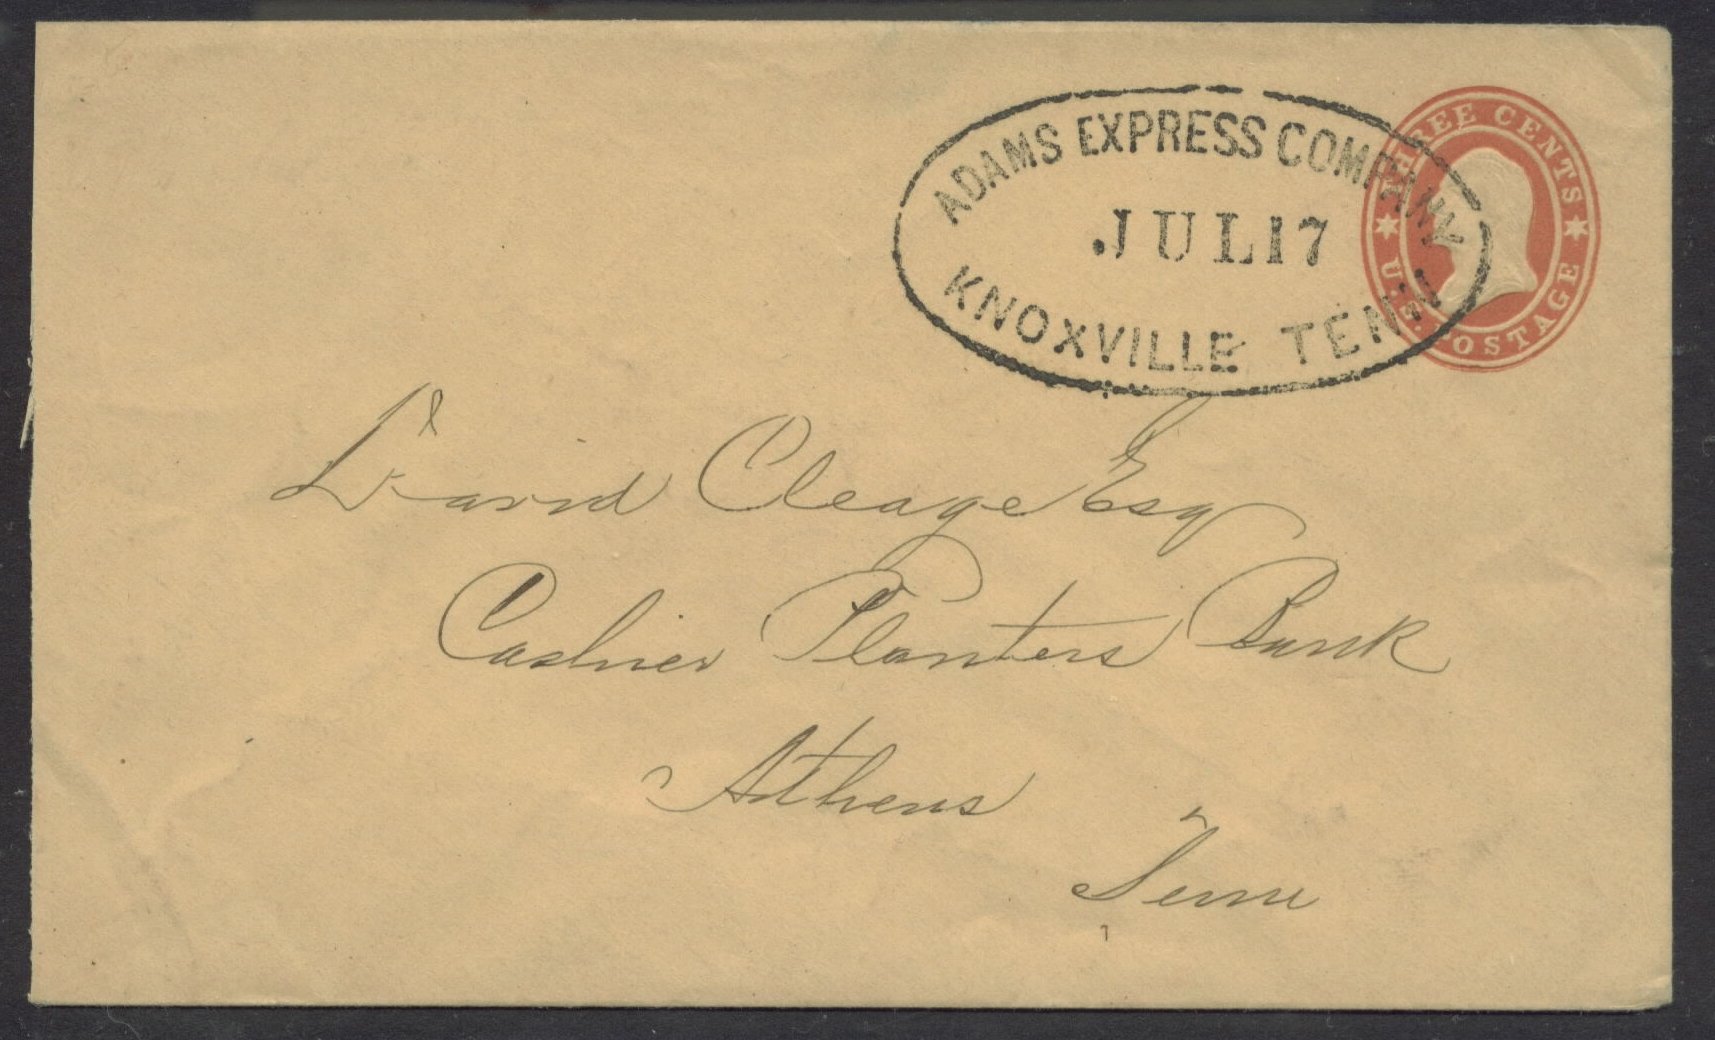 ADAMS EXPRESS COMPANY
JUL 17
KNOXVILLE TENN
THREE CENTS
U.S. POSTAGE
David Cleage Esq
Cashier Planters Bank
Athens
Tenn